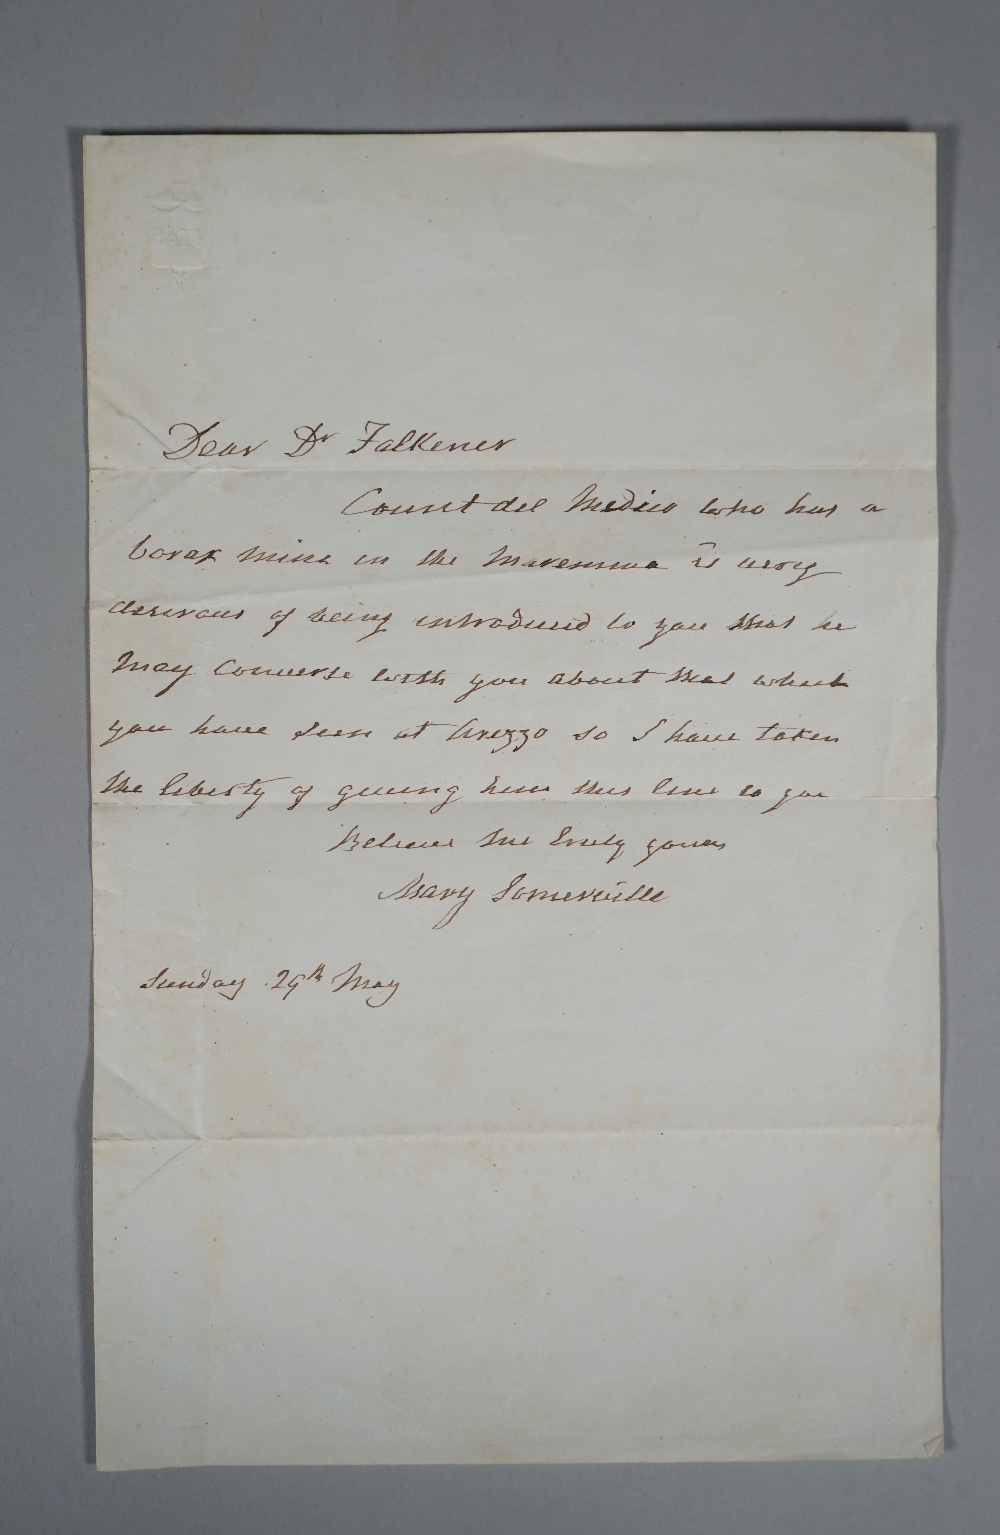 Dear Dr Falkener
Count del Medico who has a
borax mine in the Maremma is very
desirous of being introduced to you that he
may converse with you about that which
you have seen at Arezzo so I have taken
the liberty of giving him this line to you
Believe me truly yours
Mary Somerville
Sunday 29th May